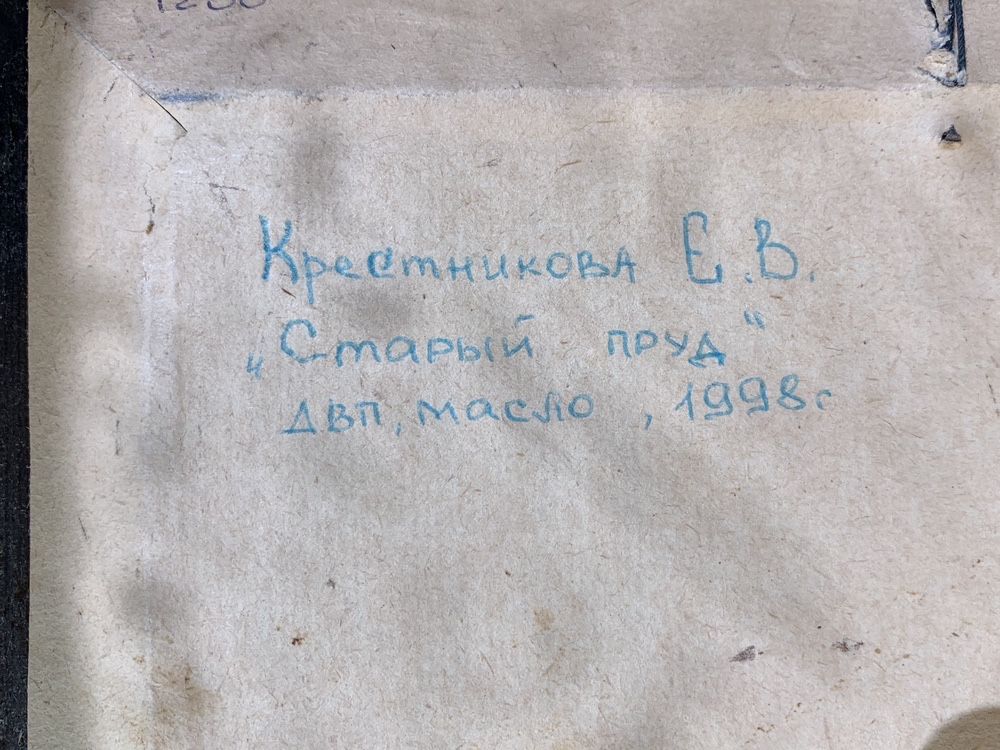 Крестникова Е.В.
„Старый пруд“
ДВП, масло, 1998г